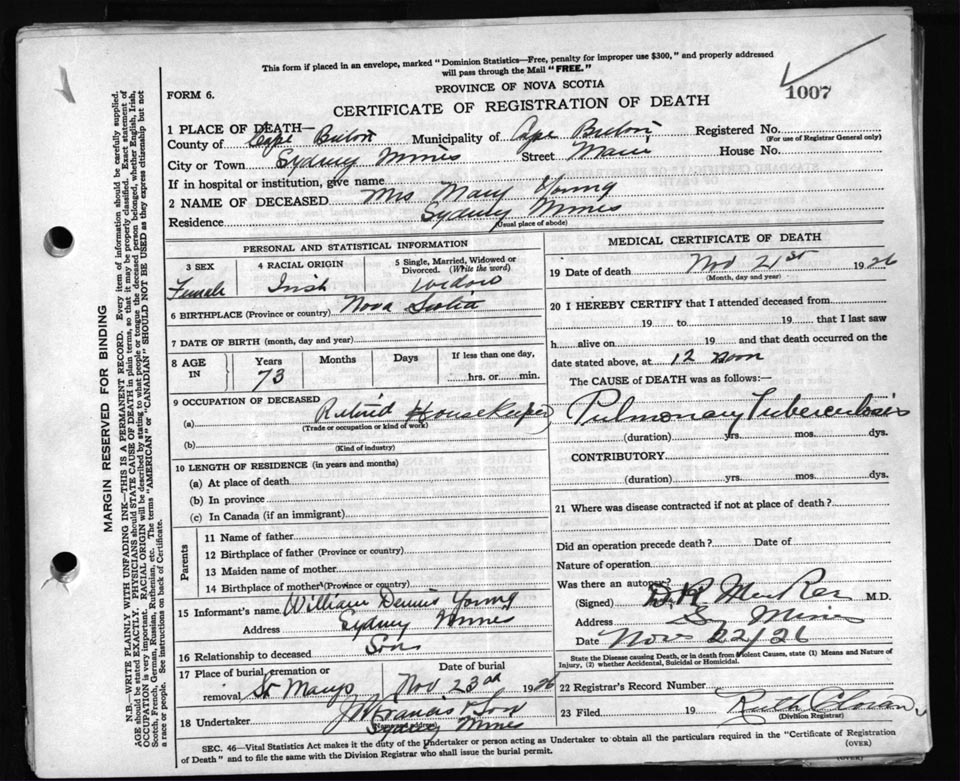 This form if placed in an envelope, marked "Dominion Statistics—Free, penalty for improper use $300," and properly addressed
will pass through the Mail "FREE."
PROVINCE OF NOVA SCOTIA
FORM 6.
CERTIFICATE OF REGISTRATION OF DEATH
1007
1 PLACE OF DEATH—
County of Cape Breton Municipality of Cape Breton Registered No.
(For use of Registrar General only)
City or Town Sydney Mines Street Main House No.
If in hospital or institution, give name
2 NAME OF DECEASED Mrs Mary Young
Residence Sydney Mines
(Usual place of abode)
PERSONAL AND STATISTICAL INFORMATION
3 SEX 4 RACIAL ORIGIN 5 Single, Married, Widowed or Divorced. (Write the word)
Female Irish Widow
6 BIRTHPLACE (Province or country) Nova Scotia
7 DATE OF BIRTH (month, day and year)
8 AGE IN Years Months Days If less than one day,
73 hrs. or min.
9 OCCUPATION OF DECEASED
(a) Retired Housekeeper
(Trade or occupation or kind of work)
(b)
(Kind of industry)
10 LENGTH OF RESIDENCE (in years and months)
(a) At place of death
(b) In province
(c) In Canada (if an immigrant)
Parents
11 Name of father
12 Birthplace of father (Province or country)
13 Maiden name of mother
14 Birthplace of mother (Province or country)
15 Informant's name William Dennis Young
Address Sydney Mines
16 Relationship to deceased Son
17 Place of burial, cremation or removal St Marys
Date of burial
Nov 23rd 1926
18 Undertaker J W Francis & Son
(Name and address)
Sydney Mines
MEDICAL CERTIFICATE OF DEATH
19 Date of death Nov 21st 1926
(Month, day and year)
20 I HEREBY CERTIFY that I attended deceased from
19 to 19 that I last saw
h alive on 19 and that death occurred on the
date stated above, at 12 noon
The CAUSE of DEATH was as follows:—
Pulmonary Tuberculosis
(duration) yrs. mos. dys.
CONTRIBUTORY
(duration) yrs. mos. dys.
21 Where was disease contracted if not at place of death?
Did an operation precede death? Date of
Nature of operation
Was there an autopsy?
(Signed) M.D.
Address Sy Mines
Date Nov 22/26
State the Disease causing Death, or in death from Violent Causes, state (1) Means and Nature of
Injury, (2) whether Accidental, Suicidal or Homicidal.
22 Registrar's Record Number
23 Filed 19 Ruth
(Division Registrar)
SEC. 46—Vital Statistics Act makes it the duty of the Undertaker or person acting as Undertaker to obtain all the particulars required in the "Certificate of Registration
of Death" and to file the same with the Division Registrar who shall issue the burial permit.
(OVER)
MARGIN RESERVED FOR BINDING
N.B.—WRITE PLAINLY WITH UNFADING INK—THIS IS A PERMANENT RECORD. Every item of information should be carefully supplied.
AGE should be stated EXACTLY. PHYSICIANS should STATE CAUSE OF DEATH in plain terms, so that it may be properly classified. Exact statement of
OCCUPATION is very important. RACIAL ORIGIN will be described by stating to what people or tongue the deceased person belonged, whether English, Irish,
Scotch, French, German, Russian, Ruthenian, etc. The terms "AMERICAN" or "CANADIAN" SHOULD NOT BE USED as they express citizenship but not
a race or people. See instructions on back of Certificate.